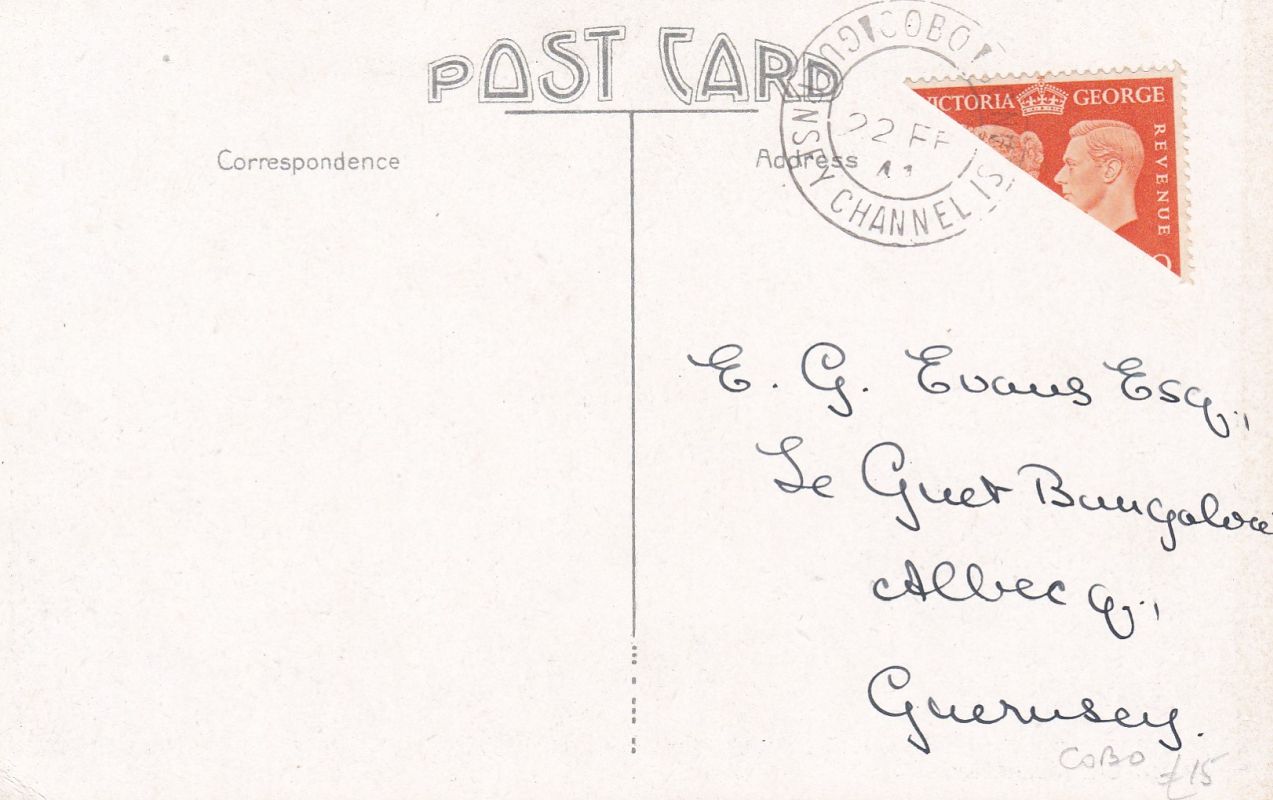 POST CARD
Correspondence
Address
COBO GUERNSEY CHANNEL IS
22 FE
41
VICTORIA GEORGE
REVENUE
E. G. Evans Esq.,
Le Guet Bungalow
Albecq.,
Guernsey.
COBO £15